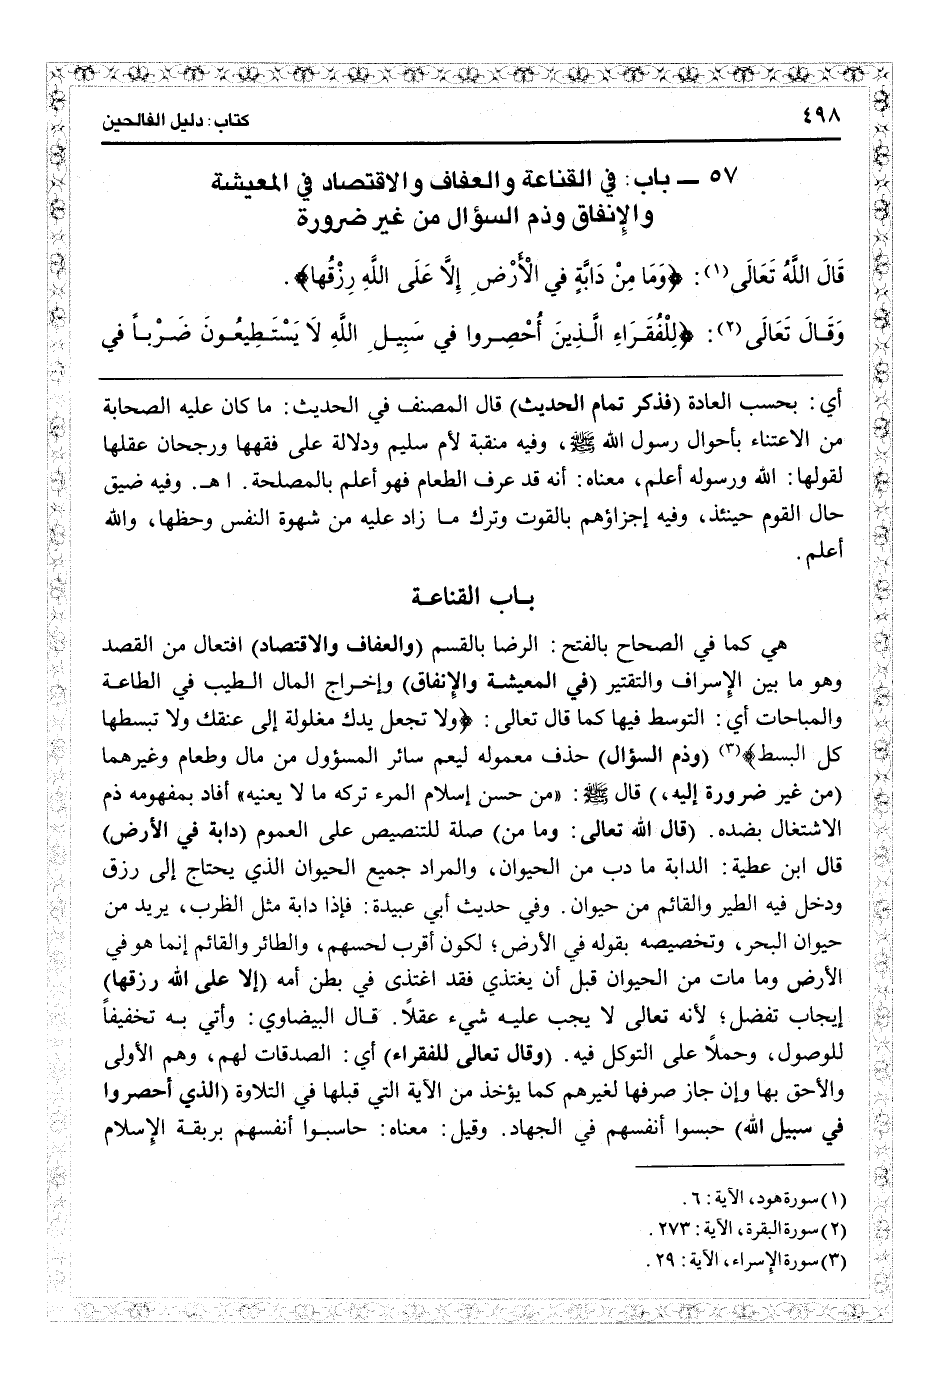 ٤٩٨
كتاب: دليل الفالحين
٥٧ ــ باب: في القناعة والعفاف والاقتصاد في المعيشة
والإنفاق وذم السؤال من غير ضرورة
قَالَ اللَّهُ تَعَالَى(١): ﴿وَمَا مِنْ دَابَّةٍ في الْأَرْضِ إِلَّا عَلَى اللَّهِ رِزْقُها﴾.
وَقَـالَ تَعَالَى(٢): ﴿لِلْفُقَـرَاءِ الَّـذِينَ أُحْصِـروا في سَبِيـلِ اللَّهِ لَا يَسْتَطِيعُـونَ ضَرْبـاً في
أي: بحسب العادة (فذكر تمام الحديث) قال المصنف في الحديث: ما كان عليه الصحابة
من الاعتناء بأحوال رسول الله ﷺ، وفيه منقبة لأم سليم ودلالة على فقهها ورجحان عقلها
لقولها: الله ورسوله أعلم، معناه: أنه قد عرف الطعام فهو أعلم بالمصلحة. ا هـ. وفيه ضيق
حال القوم حينئذ، وفيه إجزاؤهم بالقوت وترك مـا زاد عليه من شهوة النفس وحظها، والله
أعلم.
بـاب القناعـة
هي كما في الصحاح بالفتح: الرضا بالقسم (والعفاف والاقتصاد) افتعال من القصد
وهو ما بين الإسراف والتقتير (في المعيشة والإنفاق) وإخراج المال الطيب في الطاعة
والمباحات أي: التوسط فيها كما قال تعالى: ﴿ولا تجعل يدك مغلولة إلى عنقك ولا تبسطها
كل البسط﴾(٣) (وذم السؤال) حذف معموله ليعم سائر المسؤول من مال وطعام وغيرهما
(من غير ضرورة إليه،) قال ﷺ: «من حسن إسلام المرء تركه ما لا يعنيه» أفاد بمفهومه ذم
الاشتغال بضده. (قال الله تعالى: وما من) صلة للتنصيص على العموم (دابة في الأرض)
قال ابن عطية: الدابة ما دب من الحيوان، والمراد جميع الحيوان الذي يحتاج إلى رزق
ودخل فيه الطير والقائم من حيوان. وفي حديث أبي عبيدة: فإذا دابة مثل الظرب، يريد من
حيوان البحر، وتخصيصه بقوله في الأرض؛ لكون أقرب لحسهم، والطائر والقائم إنما هو في
الأرض وما مات من الحيوان قبل أن يغتذي فقد اغتذى في بطن أمه (إلا على الله رزقها)
إيجاب تفضل؛ لأنه تعالى لا يجب عليـه شيء عقلًا. قـال البيضاوي: وأتي بـه تخفيفاً
للوصول، وحملًا على التوكل فيه. (وقال تعالى للفقراء) أي: الصدقات لهم، وهم الأولى
والأحق بها وإن جاز صرفها لغيرهم كما يؤخذ من الآية التي قبلها في التلاوة (الذي أحصروا
في سبيل الله) حبسوا أنفسهم في الجهاد. وقيل: معناه: حاسبـوا أنفسهم بربقـة الإسلام
(١) سورة هود، الآية: ٦.
(٢) سورة البقرة، الآية: ٢٧٣.
(٣) سورة الإسراء، الآية: ٢٩.